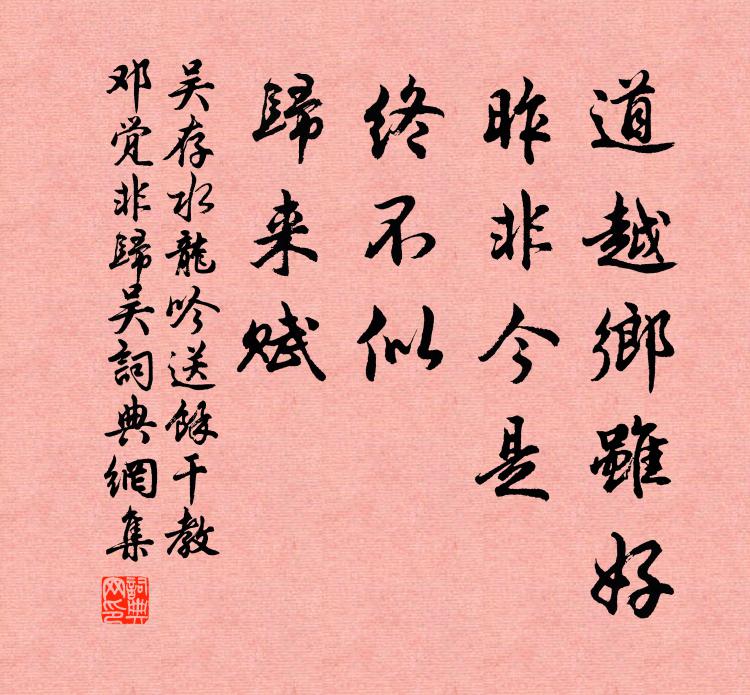 道越鄉雖好
昨非今是
終不似
歸来賦
吴存水龍吟送餘干教
邓觉非歸吴詞典網集
詞典網印